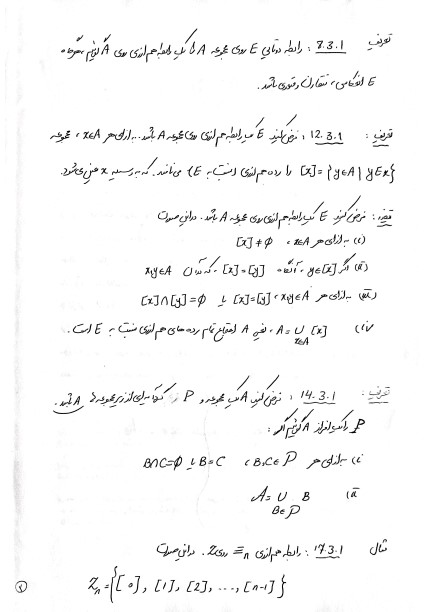 تعریف 7.3.1 : رابطه دوتایی E روی مجموعه A را یک رابطه هم ارزی روی A گوئیم هرگاه
E انعکاسی، متقارن و متعدی باشد.
تعریف 12.3.1 : فرض کنید E یک رابطه هم ارزی روی مجموعه A باشد. به ازای هر x∈A ، مجموعه
[x] = {y∈A | yEx} را رده هم ارزی (نسبت به E) می نامند. که به وسیله x معین می شود.
قضیه : فرض کنید E یک رابطه هم ارزی روی مجموعه A باشد. در این صورت
(i) به ازای هر x∈A ، [x] ≠ ∅
(ii) اگر y∈[x] ، آنگاه [x] = [y] که در آن x,y∈A
(iii) به ازای هر x,y∈A ، [x] = [y] یا [x]∩[y] = ∅
(iv) A = ∪ [x] ، یعنی A اجتماع تمام رده های هم ارزی نسبت به E است.
x∈A
تعریف 14.3.1 : فرض کنید A یک مجموعه و P از زیرمجموعه های A باشد.
P را یک افراز A گوئیم اگر :
(i به ازای هر B,C∈P ، B=C یا B∩C=∅
(ii A = ∪ B
B∈P
مثال 17.3.1 : رابطه هم ارزی ≡n روی Z. در این صورت
Zn = {[0], [1], [2], ..., [n-1]}